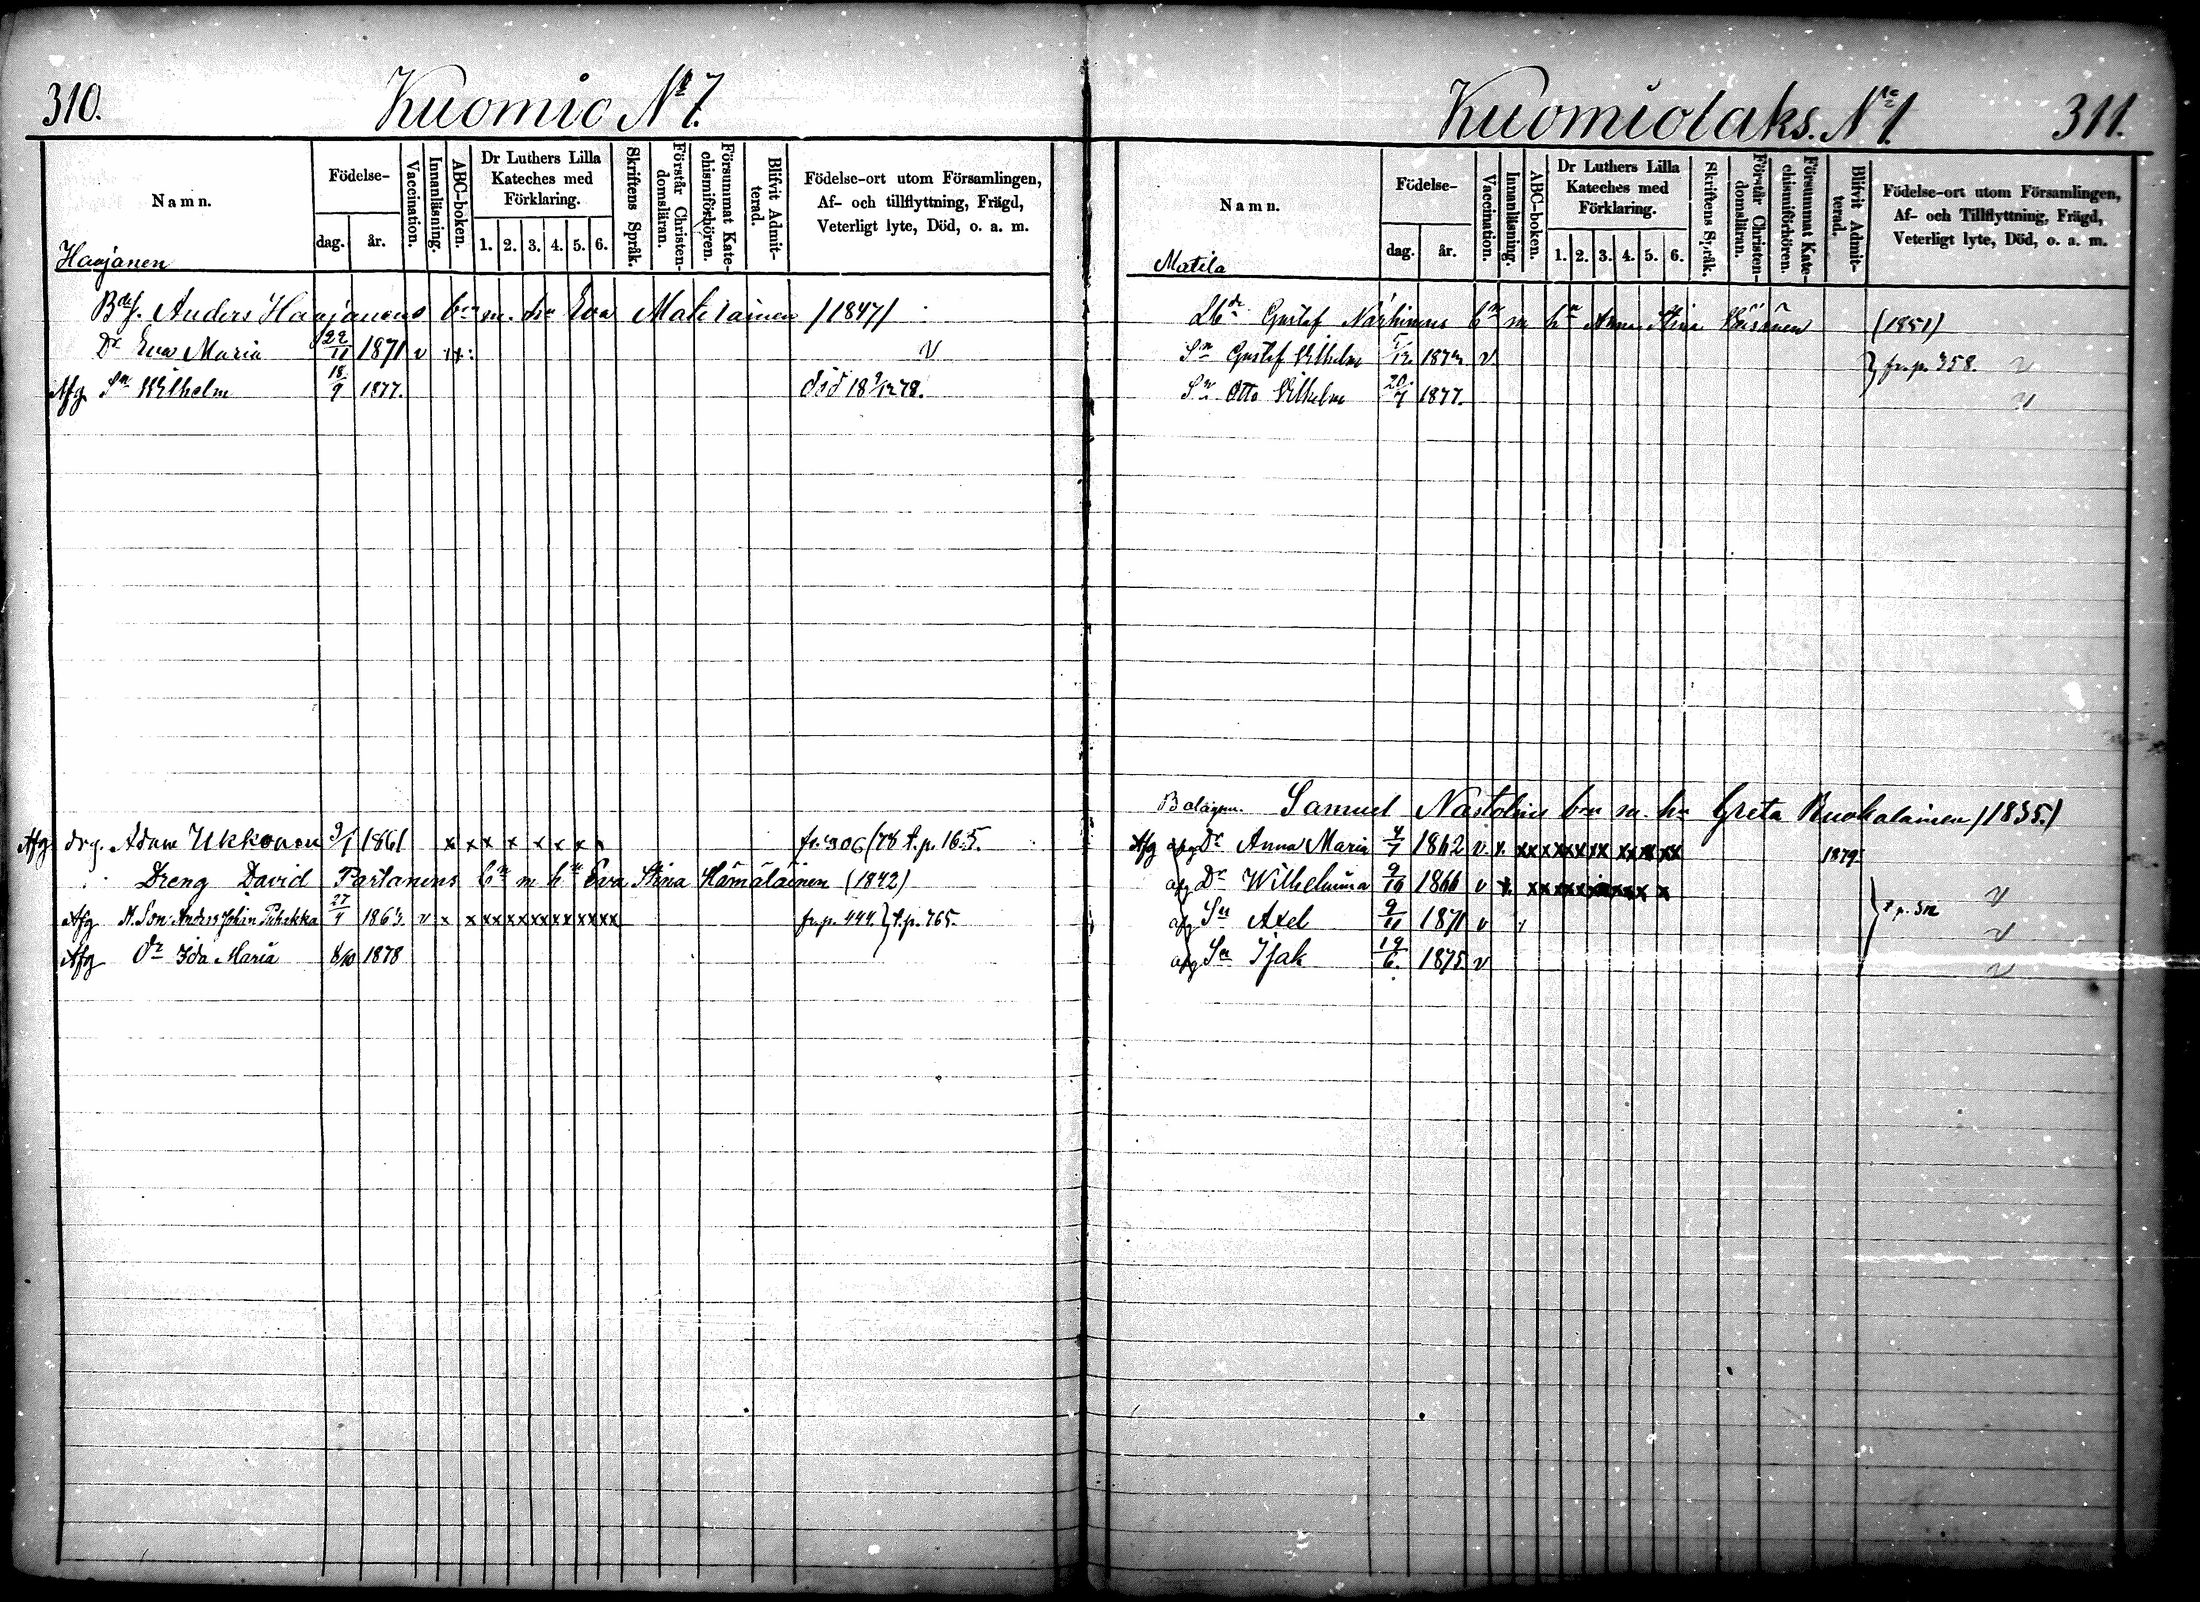 310.
Kuomio No 7.
Namn.
Födelse-
dag.
år.
Vaccination.
Innanläsning.
ABC-boken.
Dr Luthers Lilla Kateches med Förklaring.
1. 2. 3. 4. 5. 6.
Skriftens Språk.
Förstår Christendomsläran.
Försummat Katechismiförhören.
Blifvit Admitterad.
Födelse-ort utom Församlingen,
Af- och tillflyttning, Frägd,
Veterligt lyte, Död, o. a. m.
Haajanen
Anders Haajanens bn m. hu Eva Matilainen (1847)
Dr Eva Maria 22/11 1871 v
Afg Sn Wilhelm 18/9 1877. död 18 9/12 78.
Afg drg. Adam Ukkonen 9/1 1861 x x x x x x x x fr. 906/78 t.p. 165.
Dreng David Partanens bn m hu Eva Stina Hämäläinen (1842)
Afg Son Anders Johan 27/4 v x x x x x x x x x x x x fr.p. 444. } t.p. 765.
Afg Dr Ida Maria 8/10 1878
Kuomiolaks. No 1.
311.
Namn.
Födelse-
dag.
år.
Vaccination.
Innanläsning.
ABC-boken.
Dr Luthers Lilla Kateches med Förklaring.
1. 2. 3. 4. 5. 6.
Skriftens Språk.
Förstår Christendomsläran.
Försummat Katechismiförhören.
Blifvit Admitterad.
Födelse-ort utom Församlingen,
Af- och Tillflyttning, Frägd,
Veterligt lyte, Död, o. a. m.
Matila
Gustaf bn m hu Anna Stina (1851)
Sn Gustaf Vilhelm v } fr.p. 358. v
Sn Otto Vilhelm 20/7 1877. v
Samuel bn m. hu Greta Ruokolainen (1835.)
Afg afg Dr Anna Maria 4/7 1862 v x x x x x x x x x x x x 1879
afg Dr Wilhelmina 9/10 1866 v x x x x x x x x x x v
afg Sn Axel 9/11 1871 v v
afg Sn Isak 19/6 1875 v v